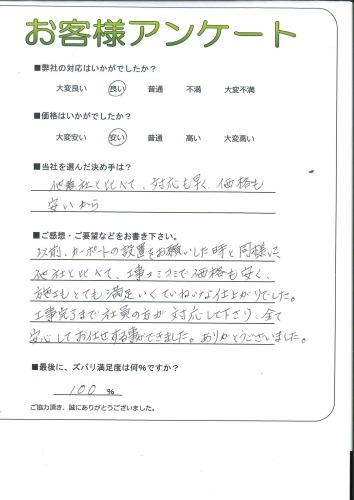 お客様アンケート
■弊社の対応はいかがでしたか？
大変良い 良い 普通 不満 大変不満
■価格はいかがでしたか？
大変安い 安い 普通 高い 大変高い
■当社を選んだ決め手は？
他業社と比べて、対応も早く、価格も
安いから
■ご感想・ご要望などをお書き下さい。
以前、カーポートの設置をお願いした時と同様に、
他社と比べて、工事コミコミで価格も安く、
施工もとても満足いくていねいな仕上がりでした。
工事完了まで社員の方が対応して下さり、全て
安心してお任せする事ができました。ありがとうございました。
■最後に、ズバリ満足度は何％ですか？
100 ％
ご協力頂き、誠にありがとうございました。